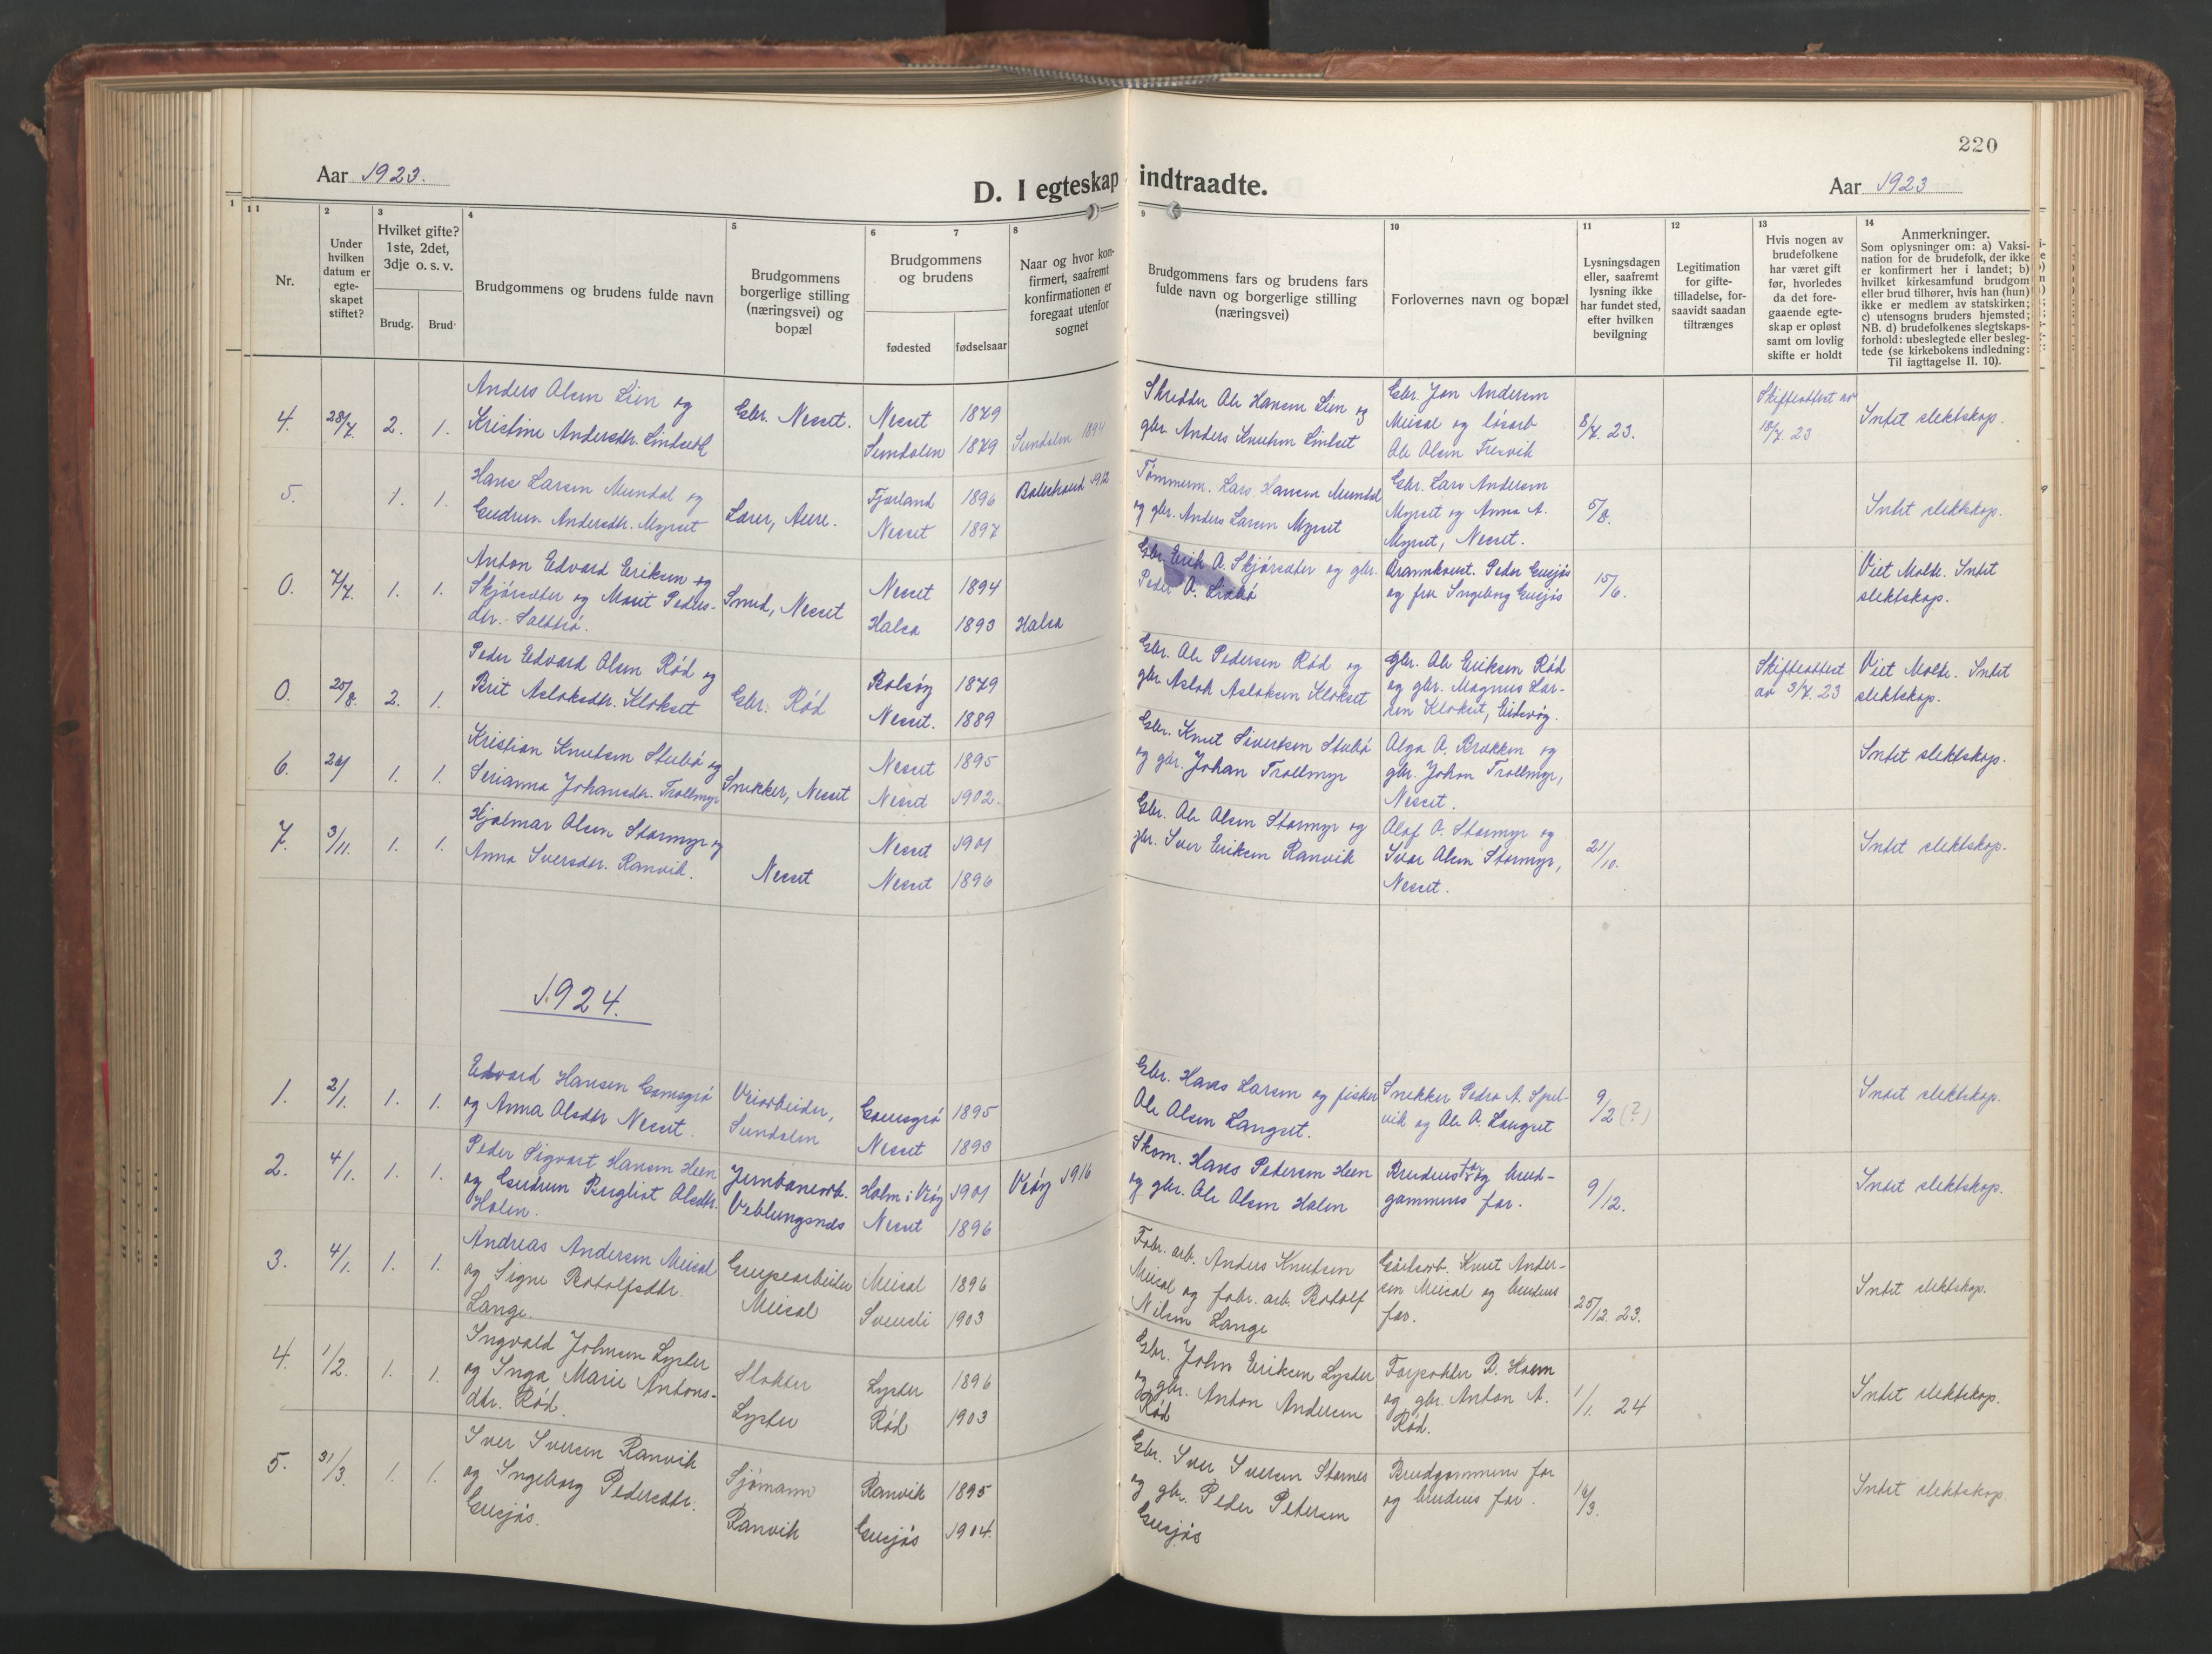 220
Aar 1923.
D. I egteskap indtraadte.
Aar 1923
1
1 1
2
3
4
5
6
7
8
9
10
11
12
13
14
Nr.
Under
hvilken
datum er
egte-
skapet
stiftet?
Hvilket gifte?
1ste, 2det,
3dje o. s. v.
Brudg.
Brud.
Brudgommens og brudens fulde navn
Brudgommens
borgerlige stilling
(næringsvei) og
bopæl
Brudgommens
og brudens
fødested
fødselsaar
Naar og hvor kon-
firmert, saafremt
konfirmationen er
foregaat utenfor
sognet
Brudgommens fars og brudens fars
fulde navn og borgerlige stilling
(næringsvei)
Forlovernes navn og bopæl
Lysningsdagen
eller, saafremt
lysning ikke
har fundet sted,
efter hvilken
bevilgning
Legitimation
for gifte-
tilladelse, for-
saavidt saadan
tiltrænges
Hvis nogen av
brudefolkene
har været gift
før, hvorledes
da det fore-
gaaende egte-
skap er opløst
samt om lovlig
skifte er holdt
Anmerkninger.
Som oplysninger om: a) Vaksi-
nation for de brudefolk, der ikke
er konfirmert her i landet; b)
hvilket kirkesamfund brudgom
eller brud tilhører, hvis han (hun)
ikke er medlem av statskirken;
c) utensogns bruders hjemsted;
NB. d) brudefolkenes slegtskaps-
forhold: ubeslegtede eller besleg-
tede (se kirkebokens indledning:
Til iagttagelse II. 10).
4. 28/7. 2. 1.
Anders Olsen Lien og
Kristine Andersdtr. Lindset
Gbr. Nesset.
Nesset 1879
Sundalen 1879
Sundalen 1894
Skredder Ole Hansen Lien og
gbr. Anders Knutsen Lindset
Gbr. Jon Andersen
Meisal og løsarb
Ole Olsen Tresvik
8/7. 23.
Skifteattest av
18/7. 23
Intet slektskap.
5. 1. 1.
Hans Larsen Mundal og
Gudrun Andersdtr. Myrset
Lærer, Aure.
Fjærland 1896
Nesset 1897
Balestrand 1912
Tømmerm. Lars Hansen Mundal
og gbr. Anders Larsen Myrset
Gbr. Lars Andersen
Myrset og Anna A.
Myrset, Nesset.
5/8.
Intet slektskap.
0. 7/7. 1. 1.
Anton Edvard Eriksen og
Skjørsæter og Marit Peders-
dtr.
Smed, Nesset
Nesset 1894
Halsa 1893
Halsa
Gbr. Erik A. Skjørsæter og gbr.
Peder A.
Brannkonst. Peder Gusjås
og fru Ingeborg Gusjås
15/6.
Viet Molde. Intet
slektskap.
0. 25/8. 2. 1.
Peder Edvard Olsen Rød og
Brit Aslaksdtr. Klokset
Gbr. Rød
Bolsøy 1879
Nesset. 1889
Gbr. Ole Pedersen Rød og
gbr Aslak Aslaksen Klokset
gbr. Ole Eriksen Rød
og gbr. Magnus Lar-
sen Klokset, Eidsvåg.
Skifteattest
av 3/7. 23
Viet Molde. Intet
slektskap.
6. 1. 1.
Kristian Knutsen Stubø og
Serianna Johansdtr. Trollmyr
Snekker, Nesset
Nesset 1895
Nesset 1902.
Gbr. Knut Sivertsen Stubø
og gbr. Johan Trollmyr
Olga O. Brakken og
gbr. Johan Trollmyr,
Nesset.
Intet slektskap.
7. 3/11. 1. 1.
Hjalmar Olsen Stormyr og
Anna Iversdtr. Ranvik.
Nesset
Nesset 1901
Nesset 1896
Gbr. Ole Olsen Stormyr og
gbr. Iver Eriksen Ranvik
Olaf O. Stormyr og
Ivar Olsen Stormyr,
Nesset.
21/10.
Intet slektskap.
1924.
1. 2/1. 1. 1.
Edvard Hansen
og Anna Olsdtr Nesset.
Veiarbeider,
Sundalen
1895
Nesset 1893
Gbr. Hans Larsen og fisker
Ole Olsen Langset.
Snekker Pedro A.
vik og Ole O. Langset
9/2 (?)
Intet slektskap.
2. 4/1. 1. 1.
Peder Sigvart Hansen Heen
og Gudrun Bergliot Olsdtr.
Holen.
Jernbanearb.
Veblungsnes
Holm i Veøy 1901
Nesset 1896
Veøy 1916
Skom. Hans Pedersen Heen
og gbr. Ole Olsen Holen
Brudens far og brud-
gommens far.
9/12.
Intet slektskap.
3. 4/1. 1. 1.
Andreas Andersen Meisal
og Signe Rodolfsdtr.
Lange.
Meisal
Meisal 1896
1903
Fabr. arb. Anders Knutsen
Meisal og fabr. arb. Rodolf
Nilsen Lange
Gårdsarb. Knut Ander-
sen Meisal og brudens
far.
25/12. 23.
Intet slektskap.
4. 1/2. 1. 1.
Ingvald Johnsen Lyster
og Inga Marie Antons-
dtr. Rød.
Slakter
Lyster
Lyster 1896
Rød 1903
Gbr. John Eriksen Lyster
og gbr. Anton Andersen
Rød
Forpakter B.
og gbr. Anton A.
Rød.
1/1. 24
Intet slektskap.
5. 31/3. 1. 1.
Iver Iversen Ranvik
og Ingeborg Pedersdtr.
Gusjås.
Sjømann
Ranvik
Ranvik 1895
Gusjås 1904.
Gbr. Iver Iversen Stornes
og gbr. Peder Pedersen
Gusjås
Brudgommens far
og brudens far.
16/3.
Intet slektskap.